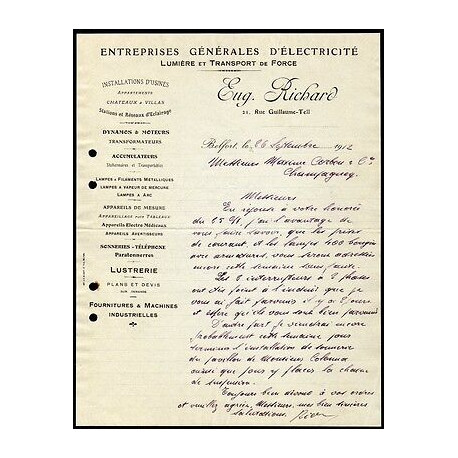 ENTREPRISES GÉNÉRALES D'ÉLECTRICITÉ
LUMIÈRE ET TRANSPORT DE FORCE
Eug. Richard
21, Rue Guillaume-Tell
INSTALLATIONS D'USINES
APPARTEMENTS
CHATEAUX & VILLAS
Stations et Réseaux d'Eclairage
DYNAMOS & MOTEURS
TRANSFORMATEURS
ACCUMULATEURS
Stationnaires et Transportables
LAMPES A FILAMENTS METALLIQUES
LAMPES A VAPEUR DE MERCURE
LAMPES A ARC
APPAREILS DE MESURE
APPAREILLAGE POUR TABLEAUX
Appareils Electro Médicaux
APPAREILS AVERTISSEURS
SONNERIES - TÉLÉPHONE
Paratonnerres
LUSTRERIE
PLANS ET DEVIS
SUR DEMANDE
FOURNITURES & MACHINES
INDUSTRIELLES
Belfort, le 26 Septembre 1912
Messieurs & Cie
Champagney
Messieurs
En réponse à votre honorée
du 25 j'ai l'avantage de
vous faire savoir, que les prises
de courant, et les lampes 400 bougies
avec armatures, vous seront adressées
encore cette semaine sans faute.
Les interrupteurs
ont dû point à l'endroit que je
vous ai fait parvenir
et espère qu'ils vous sont bien parvenus
D'autre part je viendrai encore
probablement cette semaine pour
terminer l'installation de sonnerie
du pavillon de Monsieur Colonna
ainsi que pour y placer la chaine
de suspension.
Toujours bien dévoué à vos ordres
et veuillez agréer, Messieurs, mes bien sincères
salutations.